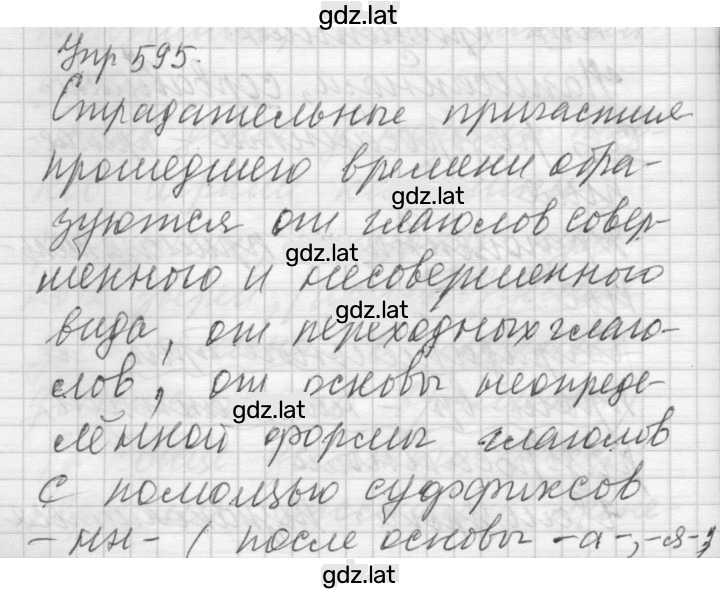 gdz.lat
Упр 595.
Страдательные причастия
прошедшего времени обра-
gdz.lat
зуются от глаголов совер-
gdz.lat
шенного и несовершенного
gdz.lat
вида, от переходных глаго-
лов, от основы неопреде-
gdz.lat
лённой формы глаголов
с помощью суффиксов
-нн- ( после основы -а-, -я-,
gdz.lat